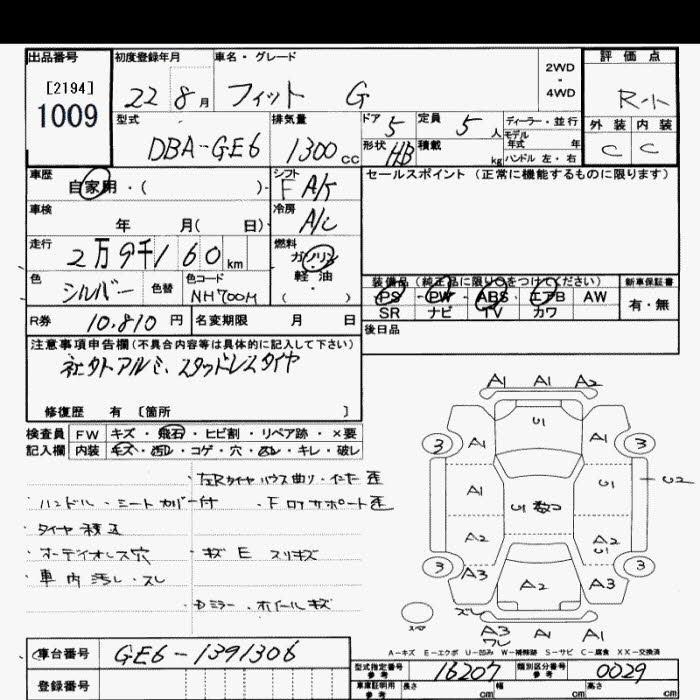 出品番号 初度登録年月 車名・グレード 2WD・4WD 評価点
[2194] 1009 22 8月 フィット G R-ト
型式 排気量 ドア 5 定員 5人 ディーラー・並行 外装 内装
DBA-GE6 1300cc 形状 HB 積載 kg モデル年式 年 ハンドル 左・右 C C
車歴 自家用・( ) シフト F A/t セールスポイント (正常に機能するものに限ります)
車検 年 月( 日) 冷房 A/C
走行 2万9千160km 燃料 ガソリン 軽油 ( )
色 シルバー 色替 色コード NH700M 装備品 (純正品に限り○をつけてください) 新車保証書
PS・PW・ABS・エアB AW 有・無
SR ナビ TV カワ
R券 10,810円 名変期限 月 日 後日品
注意事項申告欄(不具合内容等は具体的に記入して下さい)
社外アルミ、スタッドレスタイヤ
修復歴 有 [箇所 ]
検査員 FW キズ・飛石・ヒビ割・リペア跡・×要
記入欄 内装 キズ・汚レ・コゲ・穴・スレ・キレ・破レ
・左Rタイヤハウス曲り・インナー歪
・ハンドル・シートカバー付 ・Fロアサポート歪
・タイヤ積込
・オーディオレス穴 ・キズ E スリキズ
・車内汚レ・スレ
・Dミラー・ホイールキズ
A1 A1 A2
U1
3 A1 A1 3
A1 U1 U2
U1 数コ
A2 A2 U1
3 A3 A2 A3 3
スペア ズレ
A3 ワレ A1 A1
A-キズ E-エクボ U-凹み W-補修跡 S-サビ C-腐食 XX-交換済
車台番号 GE6-1391306
型式指定番号 参考 16207 類別区分番号 参考 0029
登録番号 車庫証明用 参考 長さ cm 幅 cm 高さ cm